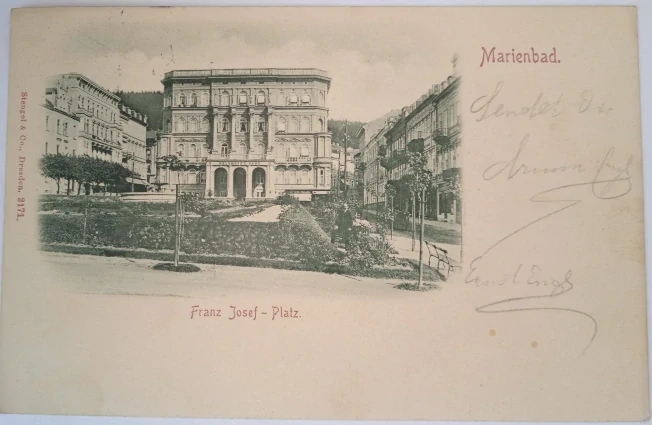 Marienbad.
Stengel & Co., Dresden, 2171.
Sendet Dir
Ernst Engl
Franz Josef-Platz.